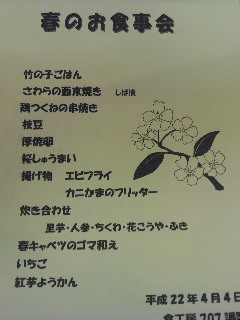 春のお食事会
竹の子ごはん
さわらの西京焼き しば漬
鶏つくねの串焼き
枝豆
厚焼卵
桜しゅうまい
揚げ物 エビフライ
カニかまのフリッター
炊き合わせ
里芋・人参・ちくわ・花こうや・ふき
春キャベツのゴマ和え
いちご
紅芋ようかん
平成22年4月4日
食工房707調